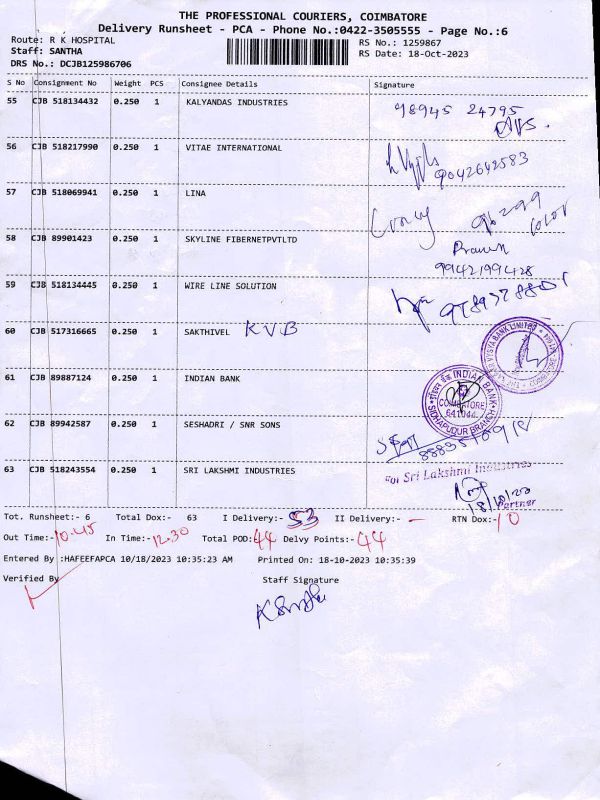 THE PROFESSIONAL COURIERS, COIMBATORE
Delivery Runsheet - PCA - Phone No.:0422-3505555 - Page No.:6
Route: R K HOSPITAL
RS No.: 1259867
Staff: SANTHA
RS Date: 18-Oct-2023
DRS No.: DCJB125986706
S No Consignment No Weight PCS Consignee Details Signature
55 CJB 518134432 0.250 1 KALYANDAS INDUSTRIES 98945 24795
56 CJB 518217990 0.250 1 VITAE INTERNATIONAL
9042642583
57 CJB 518069941 0.250 1 LINA
58 CJB 89901423 0.250 1 SKYLINE FIBERNETPVTLTD
9942199428
59 CJB 518134445 0.250 1 WIRE LINE SOLUTION
60 CJB 517316665 0.250 1 SAKTHIVEL KVB
61 CJB 89887124 0.250 1 INDIAN BANK
INDIAN BANK
COIMBATORE
641044
SIDHAPUDUR BRANCH
62 CJB 89942587 0.250 1 SESHADRI / SNR SONS
63 CJB 518243554 0.250 1 SRI LAKSHMI INDUSTRIES
For Sri Lakshmi Industries
18/10/23
Partner
Tot. Runsheet:- 6 Total Dox:- 63 I Delivery:- 53 II Delivery:- - RTN Dox:- 10
Out Time:- 10.45 In Time:- 12.30 Total POD: 44 Delvy Points:- 44
Entered By :HAFEEFAPCA 10/18/2023 10:35:23 AM Printed On: 18-10-2023 10:35:39
Verified By Staff Signature